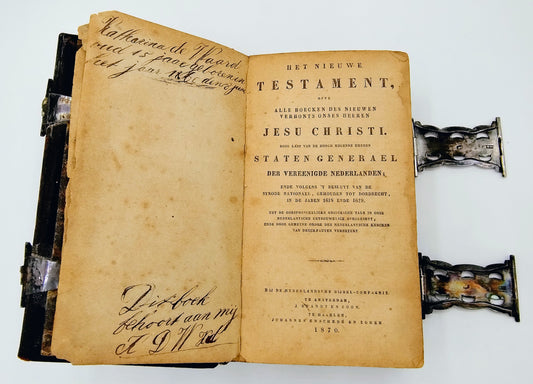 Katharina de Waard
oud 15 jaar geboren in
het jaar
Dit boek
behoort aan mij
K D W
HET NIEUWE
TESTAMENT,
OFTE
ALLE BOECKEN DES NIEUWEN
VERBONTS ONSES HEEREN
JESU CHRISTI.
DOOR LAST VAN DE HOOGH MOGENDE HEEREN
STATEN GENERAEL
DER VEREENIGDE NEDERLANDEN,
ENDE VOLGENS 'T BESLUYT VAN DE
SYNODE NATIONAEL, GEHOUDEN TOT DORDRECHT,
IN DE JAREN 1618 ENDE 1619.
UYT DE OORSPRONCKELICKE GRIECKSCHE TALE IN ONSE
NEDERLANTSCHE GETROUWELICK OVERGESETT,
ENDE DOOR GEMEYNE ORDRE DER NEDERLANTSCHE KERCKEN
VAN DRUCKFAUTEN VERBETERT
BIJ DE NEDERLANDSCHE BIJBEL-COMPAGNIE.
TE AMSTERDAM,
J. BRANDT EN ZOON.
TE HAARLEM,
JOHANNES ENSCHEDÉ EN ZONEN
1870.